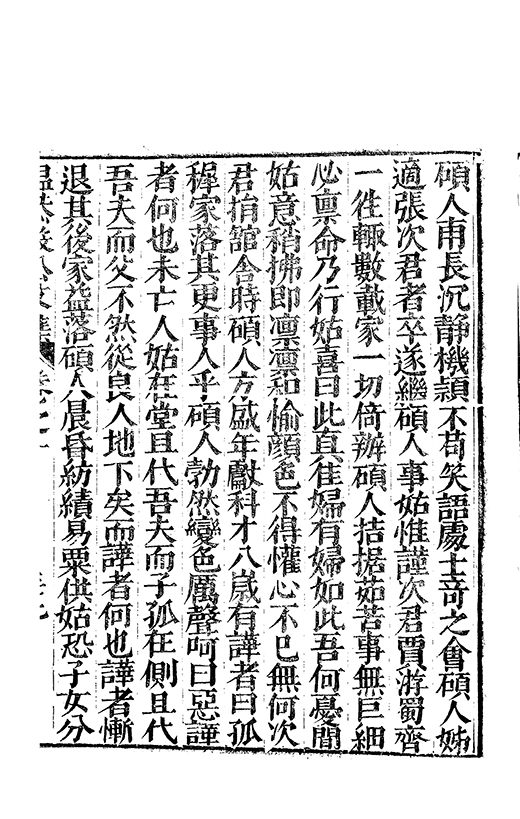 碩人甫長沉靜機頴不苟笑語處士竒之會碩人姊
適張次君者卒遂繼碩人事姑惟謹次君賈游蜀齊
一徃輒數載家一切倚辦碩人拮据茹苦事無巨細
必禀命乃行姑喜曰此真佳婦有婦如此吾何憂間
姑意稍拂即凛凛和愉顔色不得懽心不已無何次
君捐舘舎時碩人方盛年獻科才八歲有譁者曰孤
穉家落其更事人乎碩人勃然變色厲聲呵曰惡譁
者何也未亡人姑在堂且代吾夫而子孤在側且代
吾夫而父不然從良人地下矣而譁者何也譁者慚
退其後家益落碩人晨昏紡績易粟供姑恐子女分
温恭毅公文集 卷之十一